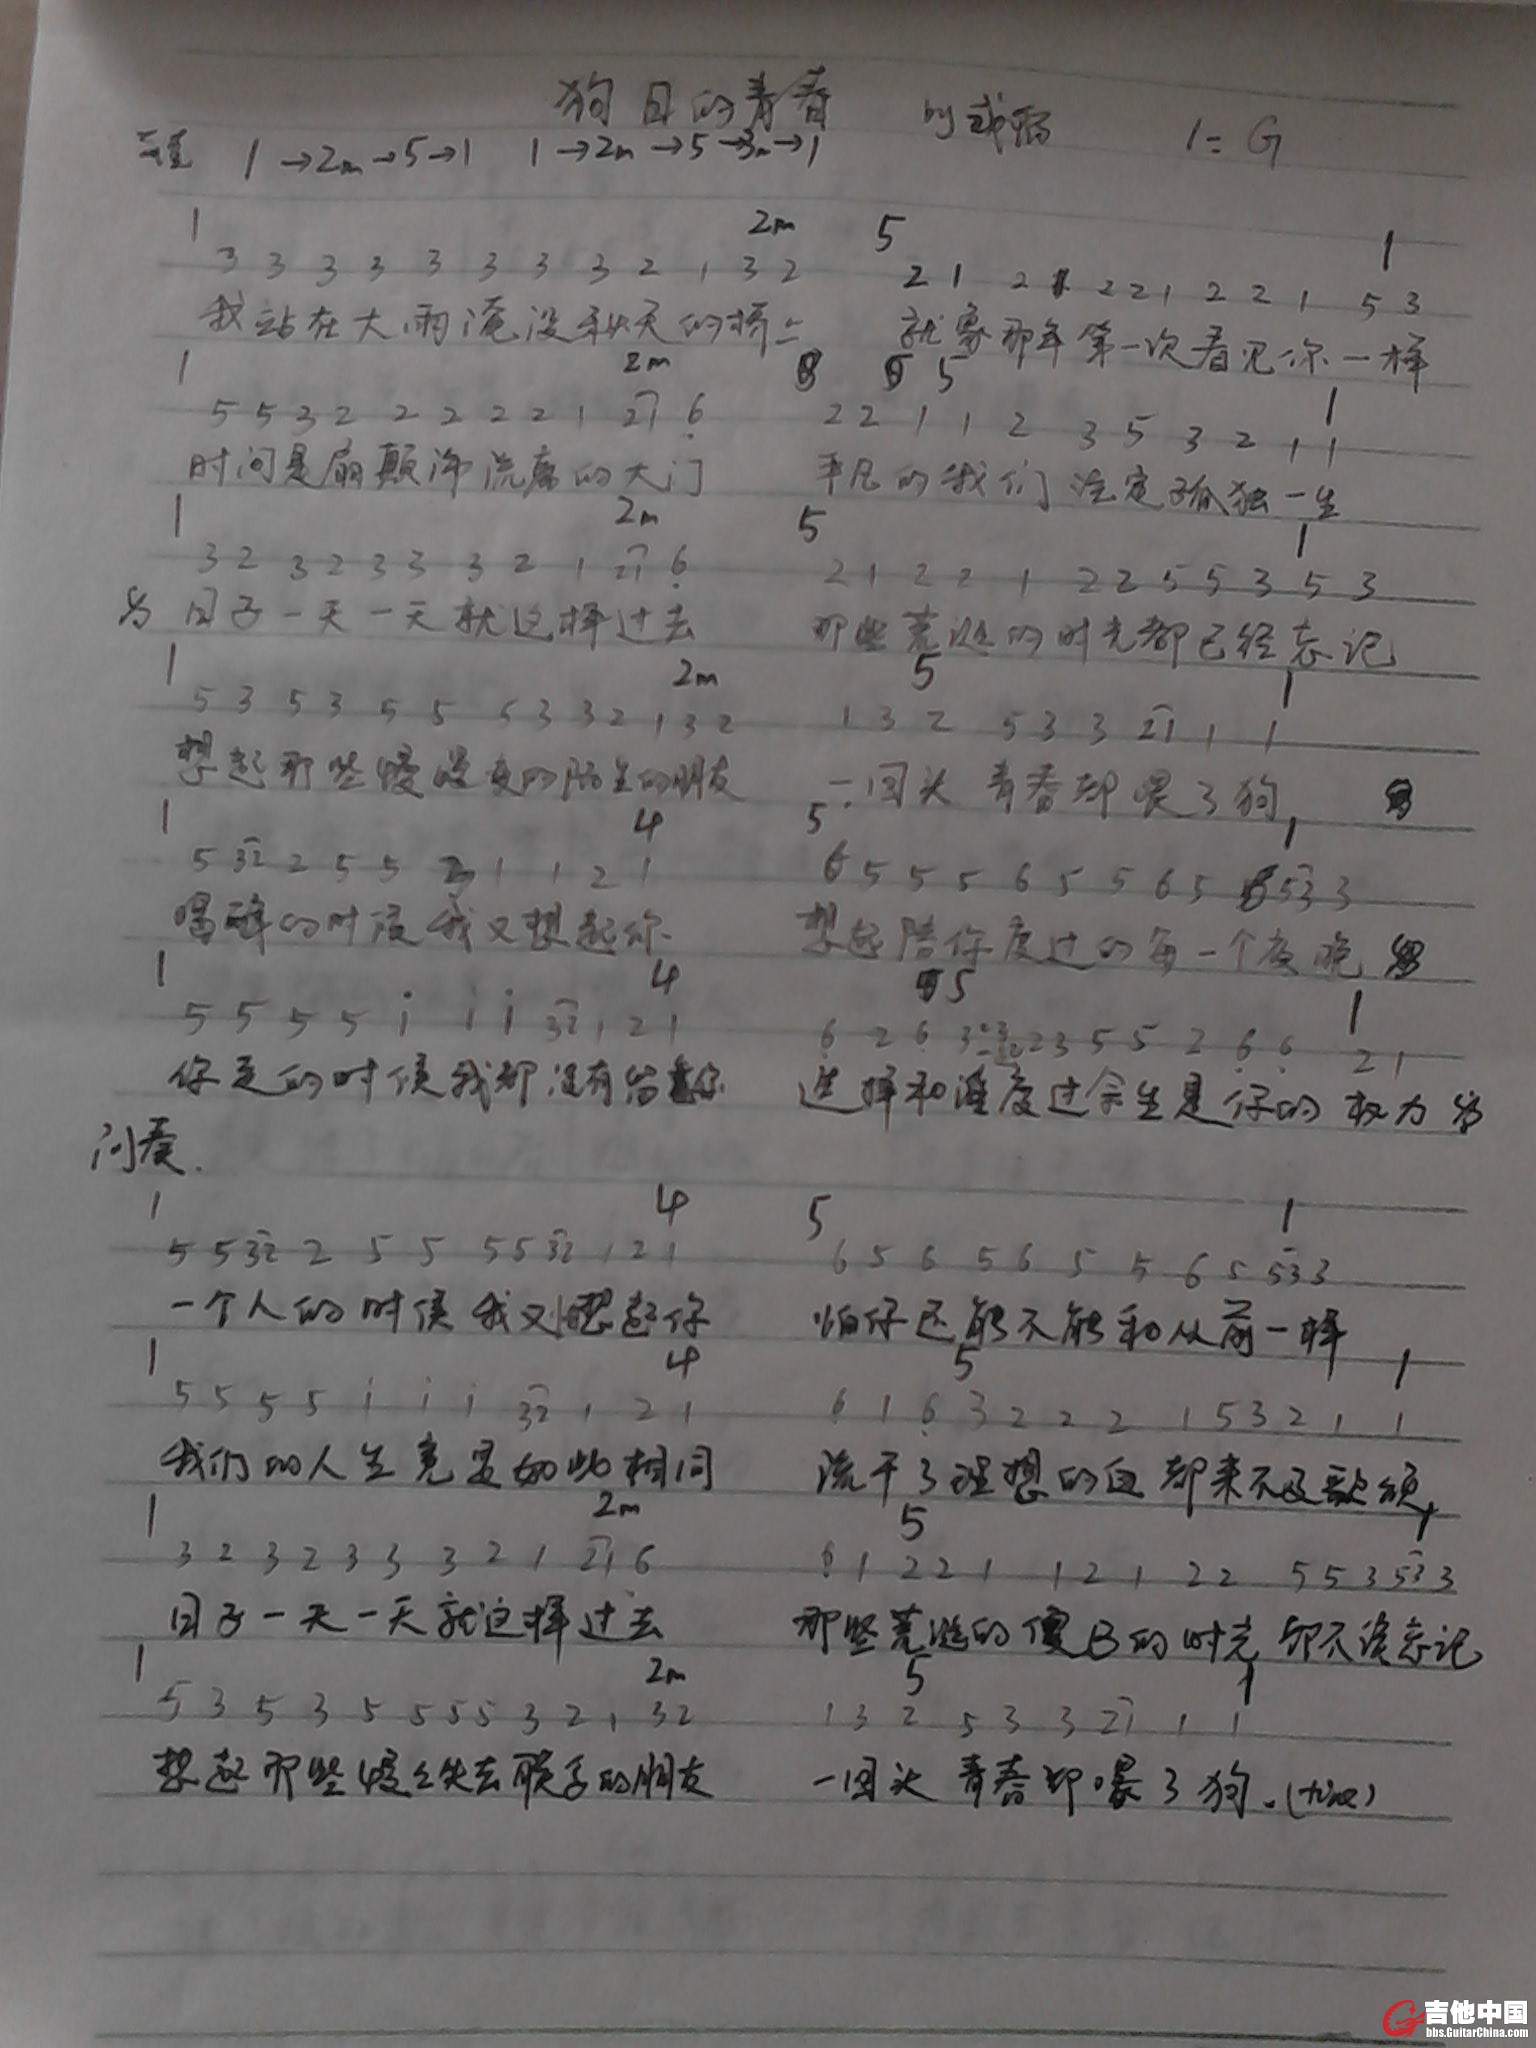 狗日的青春 by 1=G
1→2m→5→1 1→2m→5→3m→1
1 2m 5 1
3 3 3 3 3 3 3 3 2 1 3 2 2 1 2 1 2 2 1 2 2 1 5 3
我站在大雨淹没秋天的桥上 就象那年第一次看见你一样
1 2m 5 1
5 5 3 2 2 2 2 2 1 21 6 2 2 1 1 2 3 5 3 2 1 1
时间是扇颠沛流离的大门 平凡的我们注定孤独一生
1 2m 5 1
3 2 3 2 3 3 3 2 1 21 6 2 1 2 2 1 2 2 5 5 3 5 3
日子一天一天就这样过去 那些荒诞的时光都已经忘记
1 2m 5 1
5 3 5 3 5 5 5 3 3 2 1 3 2 1 3 2 5 3 3 21 1 1
想起那些慢慢变的陌生的朋友 一回头 青春却喂了狗
1 4 5 1
5 32 2 5 5 2 1 1 2 1 6 5 5 5 6 5 5 6 5 53 3
喝醉的时候我又想起你 想起陪你度过的每一个夜晚
1 4 5 1
5 5 5 5 i i i 32 1 2 1 6 2 6 3 2 3 5 5 2 6 6 2 1
你走的时候我却没有留住你 选择和谁度过余生是你的权力
间奏.
1 4 5 1
5 5 32 2 5 5 5 5 32 1 2 1 6 5 6 5 6 5 5 6 5 53 3
一个人的时候我又想起你 怕你还能不能和从前一样
1 4 5 1
5 5 5 5 i i i 32 1 2 1 6 1 6 3 2 2 2 1 5 3 2 1 1
我们的人生竟是如此相同 流干了理想的血却来不及歌颂
1 2m 5 1
3 2 3 2 3 3 3 2 1 21 6 6 1 2 2 1 1 2 1 2 2 5 5 3 53 3
日子一天一天就这样过去 那些荒诞的傻B的时光却不该忘记
1 2m 5 1
5 3 5 3 5 5 5 5 3 2 1 3 2 1 3 2 5 3 3 21 1 1
想起那些慢慢失去联系的朋友 一回头 青春却喂了狗.(fine)
吉他中国
bbs.GuitarChina.com